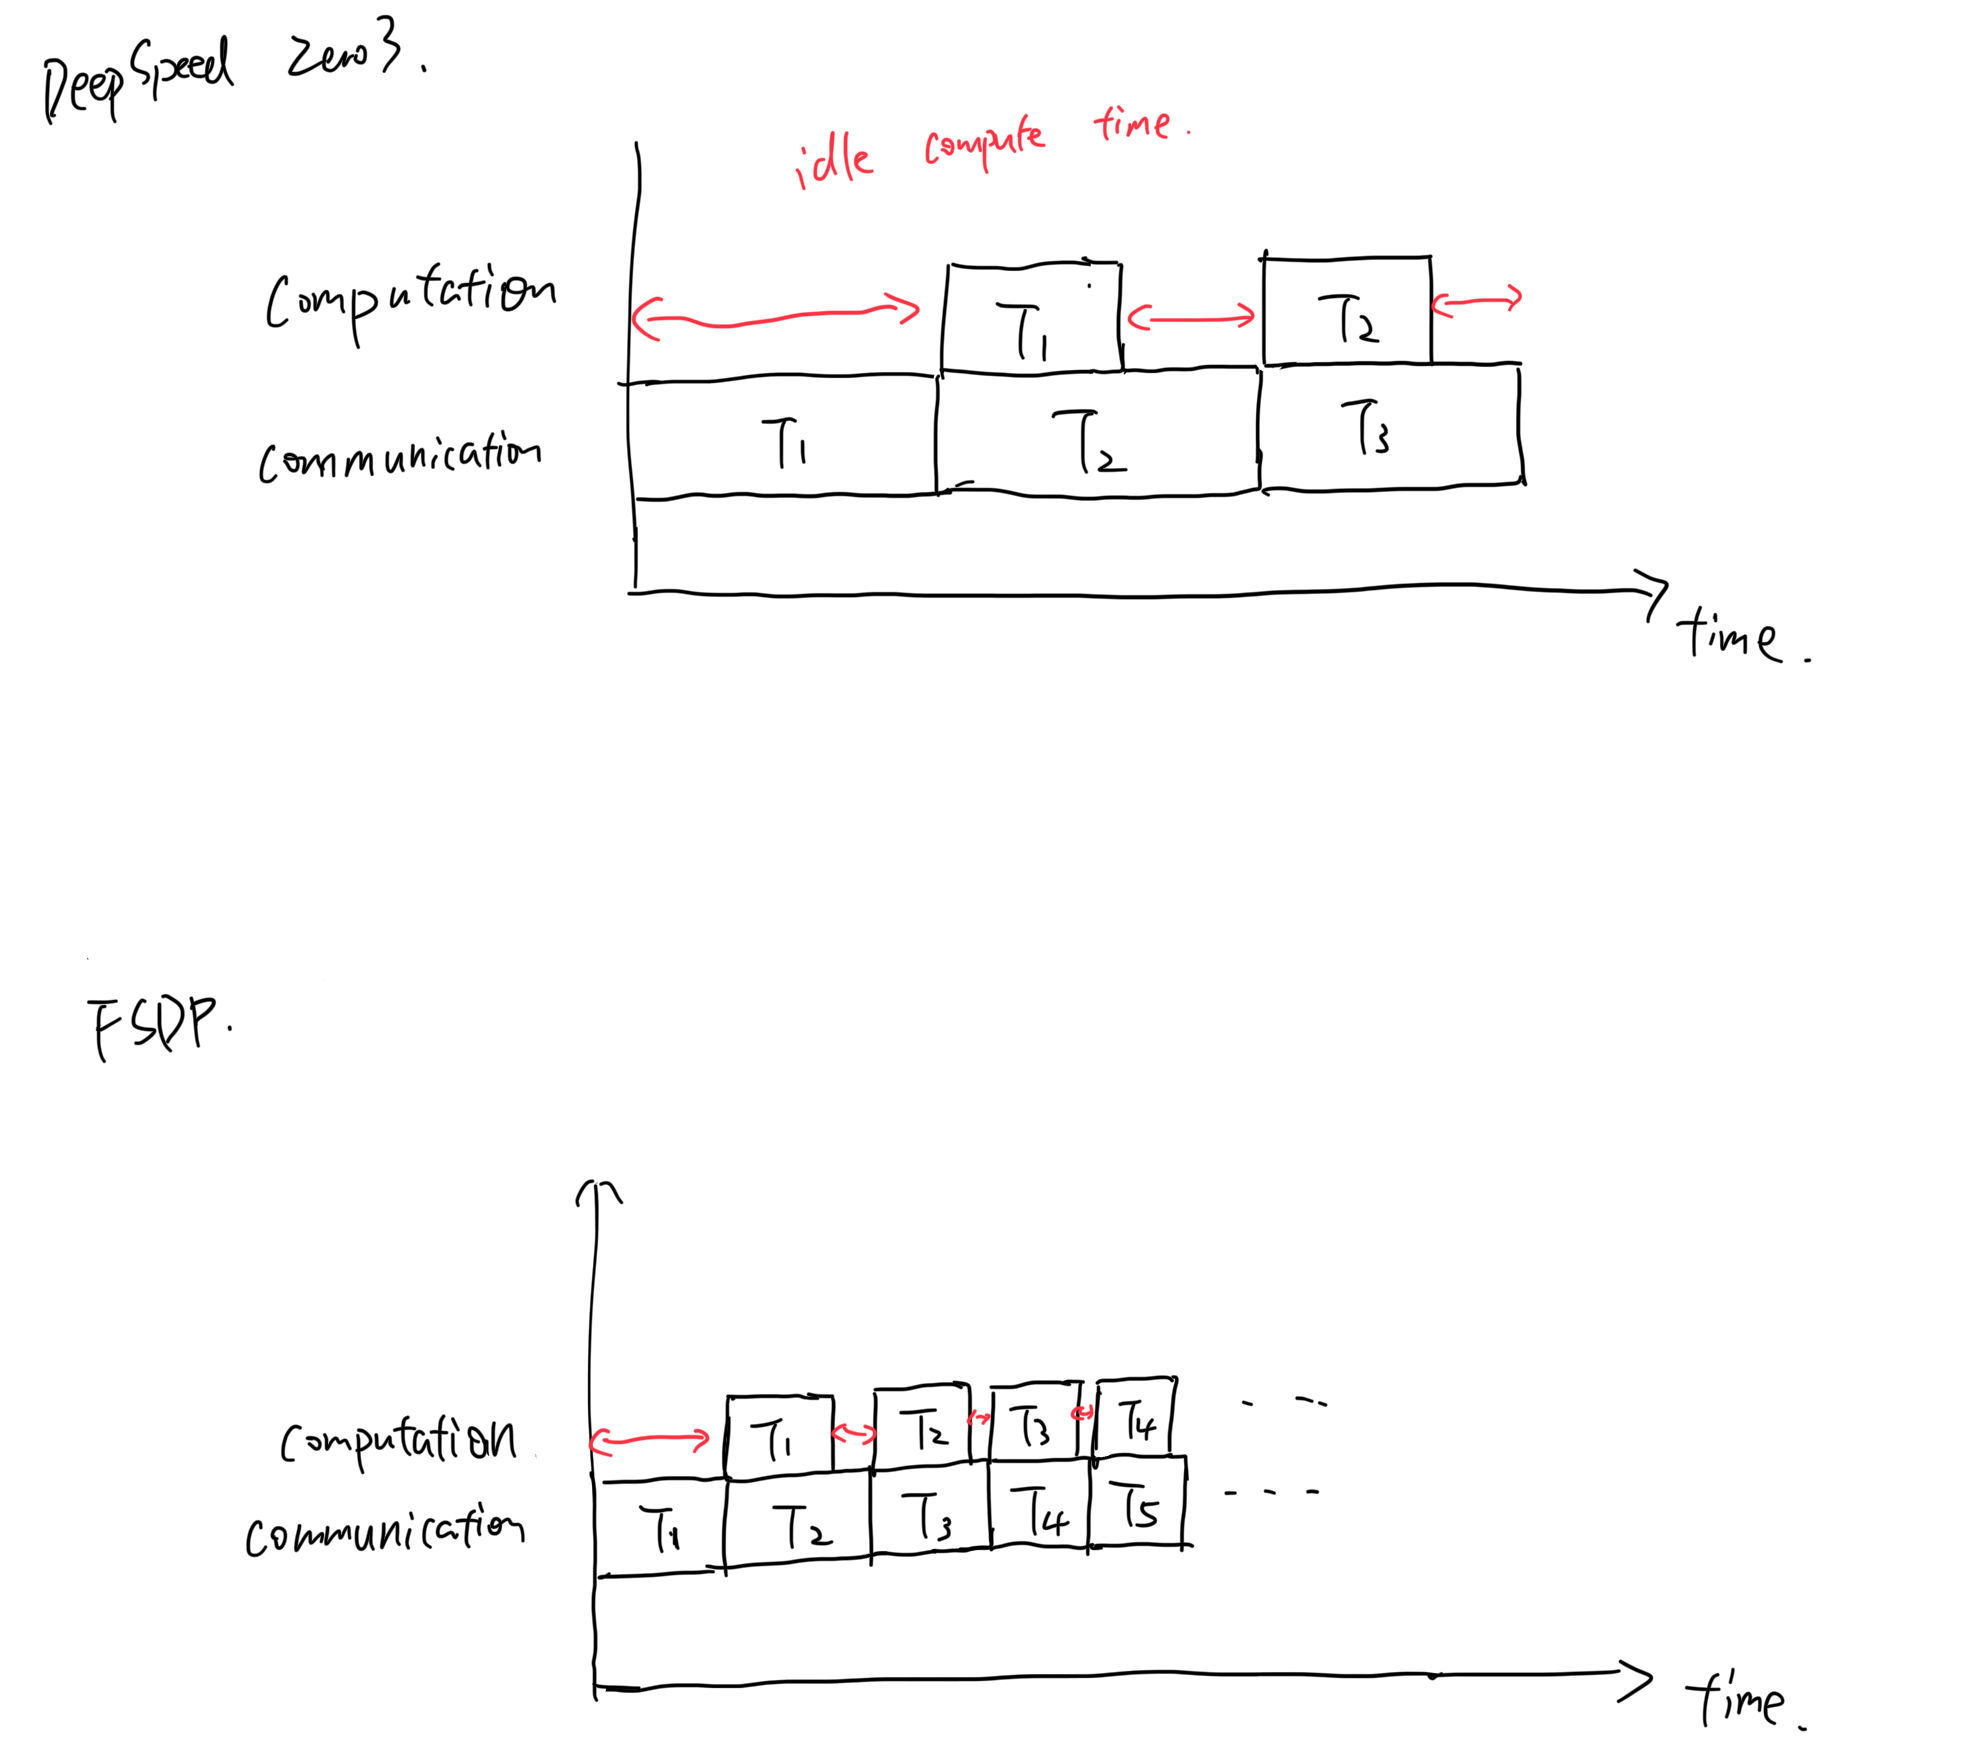 DeepSpeed Zero3.
idle compute time.
Computation
T1 T2
Communication
T1 T2 T3
time.
FSDP.
Computation
T1 T2 T3 T4 - --
Communication
T1 T2 T3 T4 T5 - - -
time.